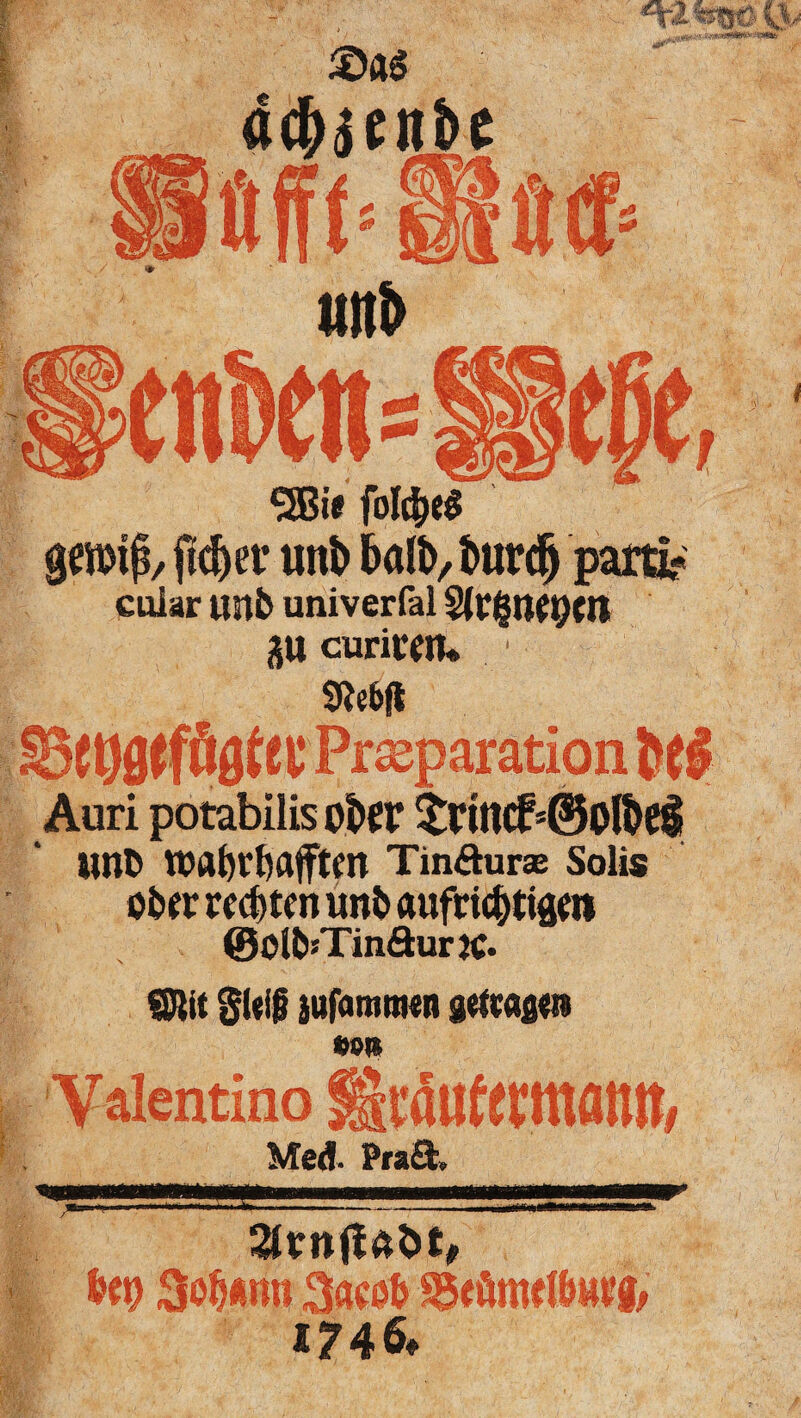 Das
ächzende
Hüfft- Rück-
und
Lenden-Wehe,
Wie solches
gewiß, sicher und bald, durch parti-
cular und universal Artzneyen
zu curiren.
Nebst
Beygefügter Præparation des
Auri potabilis oder Trinck-Goldes
und wahrhafften Tincturæ Solis
oder rechten und aufrichtigen
Gold-Tinctur ꝛc.
Mit Fleiß zusammen getragen
von
Valentino Kräutermann,
Med. Pract.
Arnstadt,
bey Johann Jacob Beümelburg,
1746.